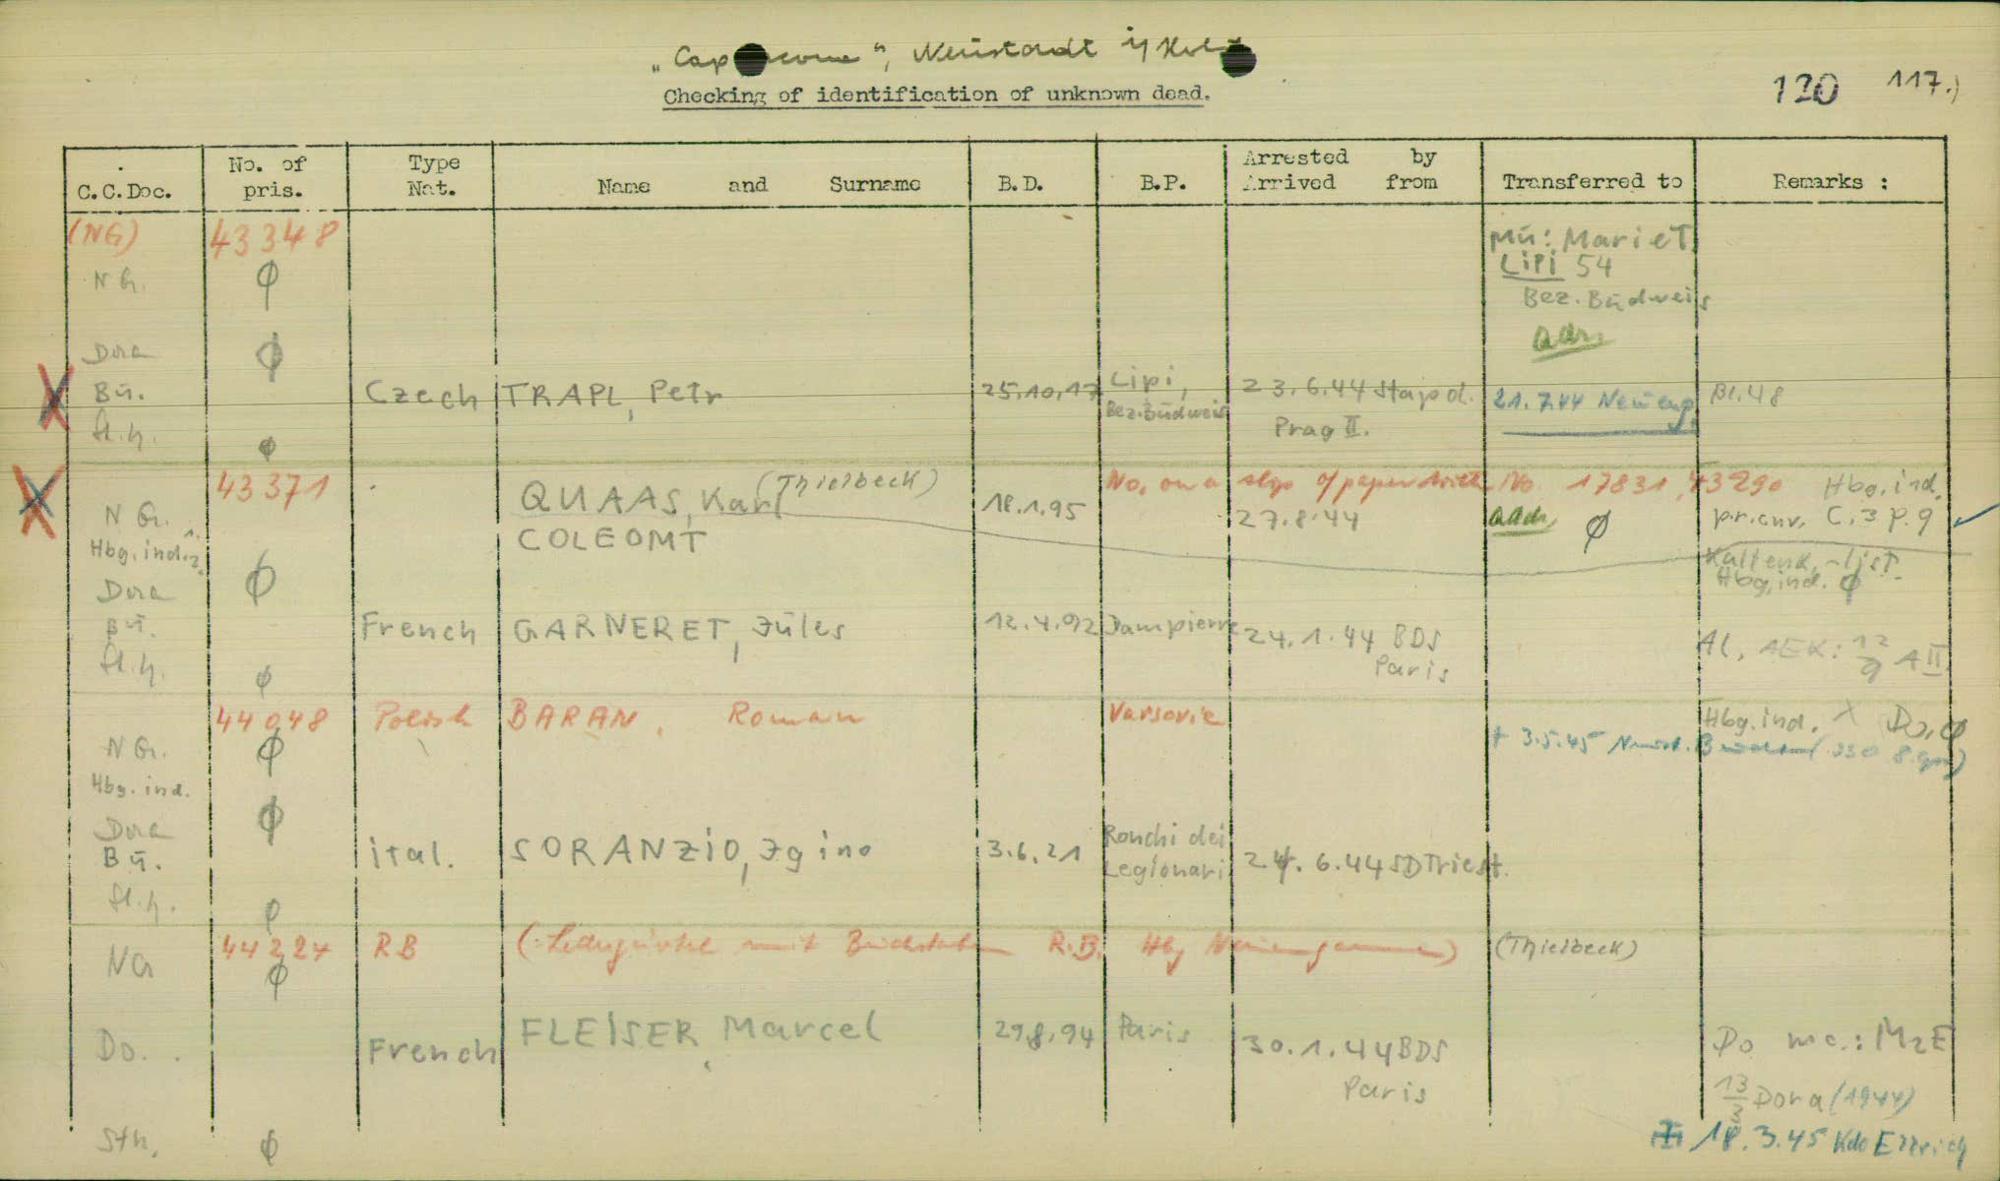 "Cap Arcona", Neustadt i/Holst
Checking of identification of unknown dead.
120 117.)
C.C.Doc. No. of pris. Type Nat. Name and Surname B.D. B.P. Arrested by Arrived from Transferred to Remarks :
(NG) 43348 Mü: Marie T.
N G. ϕ Lipi 54
Bez. Budweis
Dora ϕ adr.
X Bü. Czech TRAPL, Petr 25.10.17 Lipi, Bez. Budweis 23.6.44 Stapo d. Prag II. 21.7.44 Neueng. Bl. 48
ϕ
X 43371 QUAAS, Karl (Thielbeck) 18.1.95 No, on a slip of paper with No. 17831, 43290 Hbg. ind.
N G. COLEOMT 27.8.44 adr. ϕ pr. env. C.3 p. 9
Hbg. ind. 2. Kaltenk.-list.
Dora ϕ Hbg. ind. ϕ
Bü. French GARNERET, Jules 12.4.92 Dampierre 24.1.44 BDS Paris AL, AEK: 12/9 A II
ϕ
44048 Polish BARAN, Roman Varsovie Hbg. ind. X Do, ϕ
N G. ϕ + 3.5.45 Neust. (330 8.)
Hbg. ind.
Dora ϕ
Bü. ital. SORANZIO, Igino 3.6.21 Ronchi dei Legionari 24.6.44 SD Triest.
44224 RB (Ledergürtel mit Buchstaben R.B. Hbg Neuengamme) (Thielbeck)
Na ϕ
Do. French FLEISER, Marcel 29.8.94 Paris 30.1.44 BDS Paris Do
13/3 Dora (1944)
Sth. ϕ 18.3.45 Kdo Ellrich